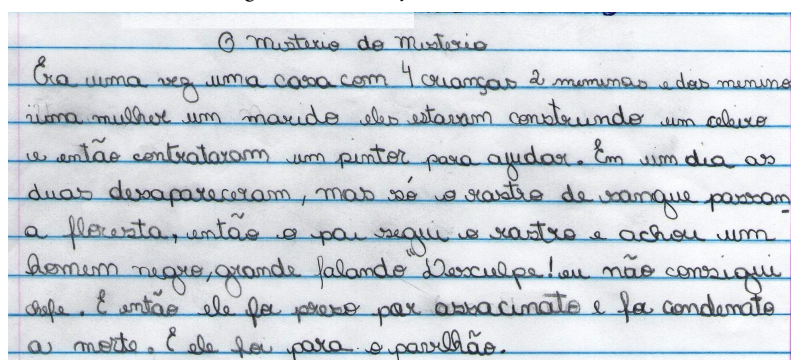 O misterio do misterio
Era uma vez uma casa com 4 crianças 2 meninas e dois menino
uma mulher um marido eles estavam construindo um celeiro
e então contrataram um pintor para ajudar. Em um dia as
duas desapareceram, mas só o rastro de sangue passan
a floresta, então o pai segui o rastro e achou um
homem negro, grande falando "Desculpe! eu não consigui
chefe. E então ele foi preso por assacinato e foi condenato
a morte. E ele foi para o pavilhão.